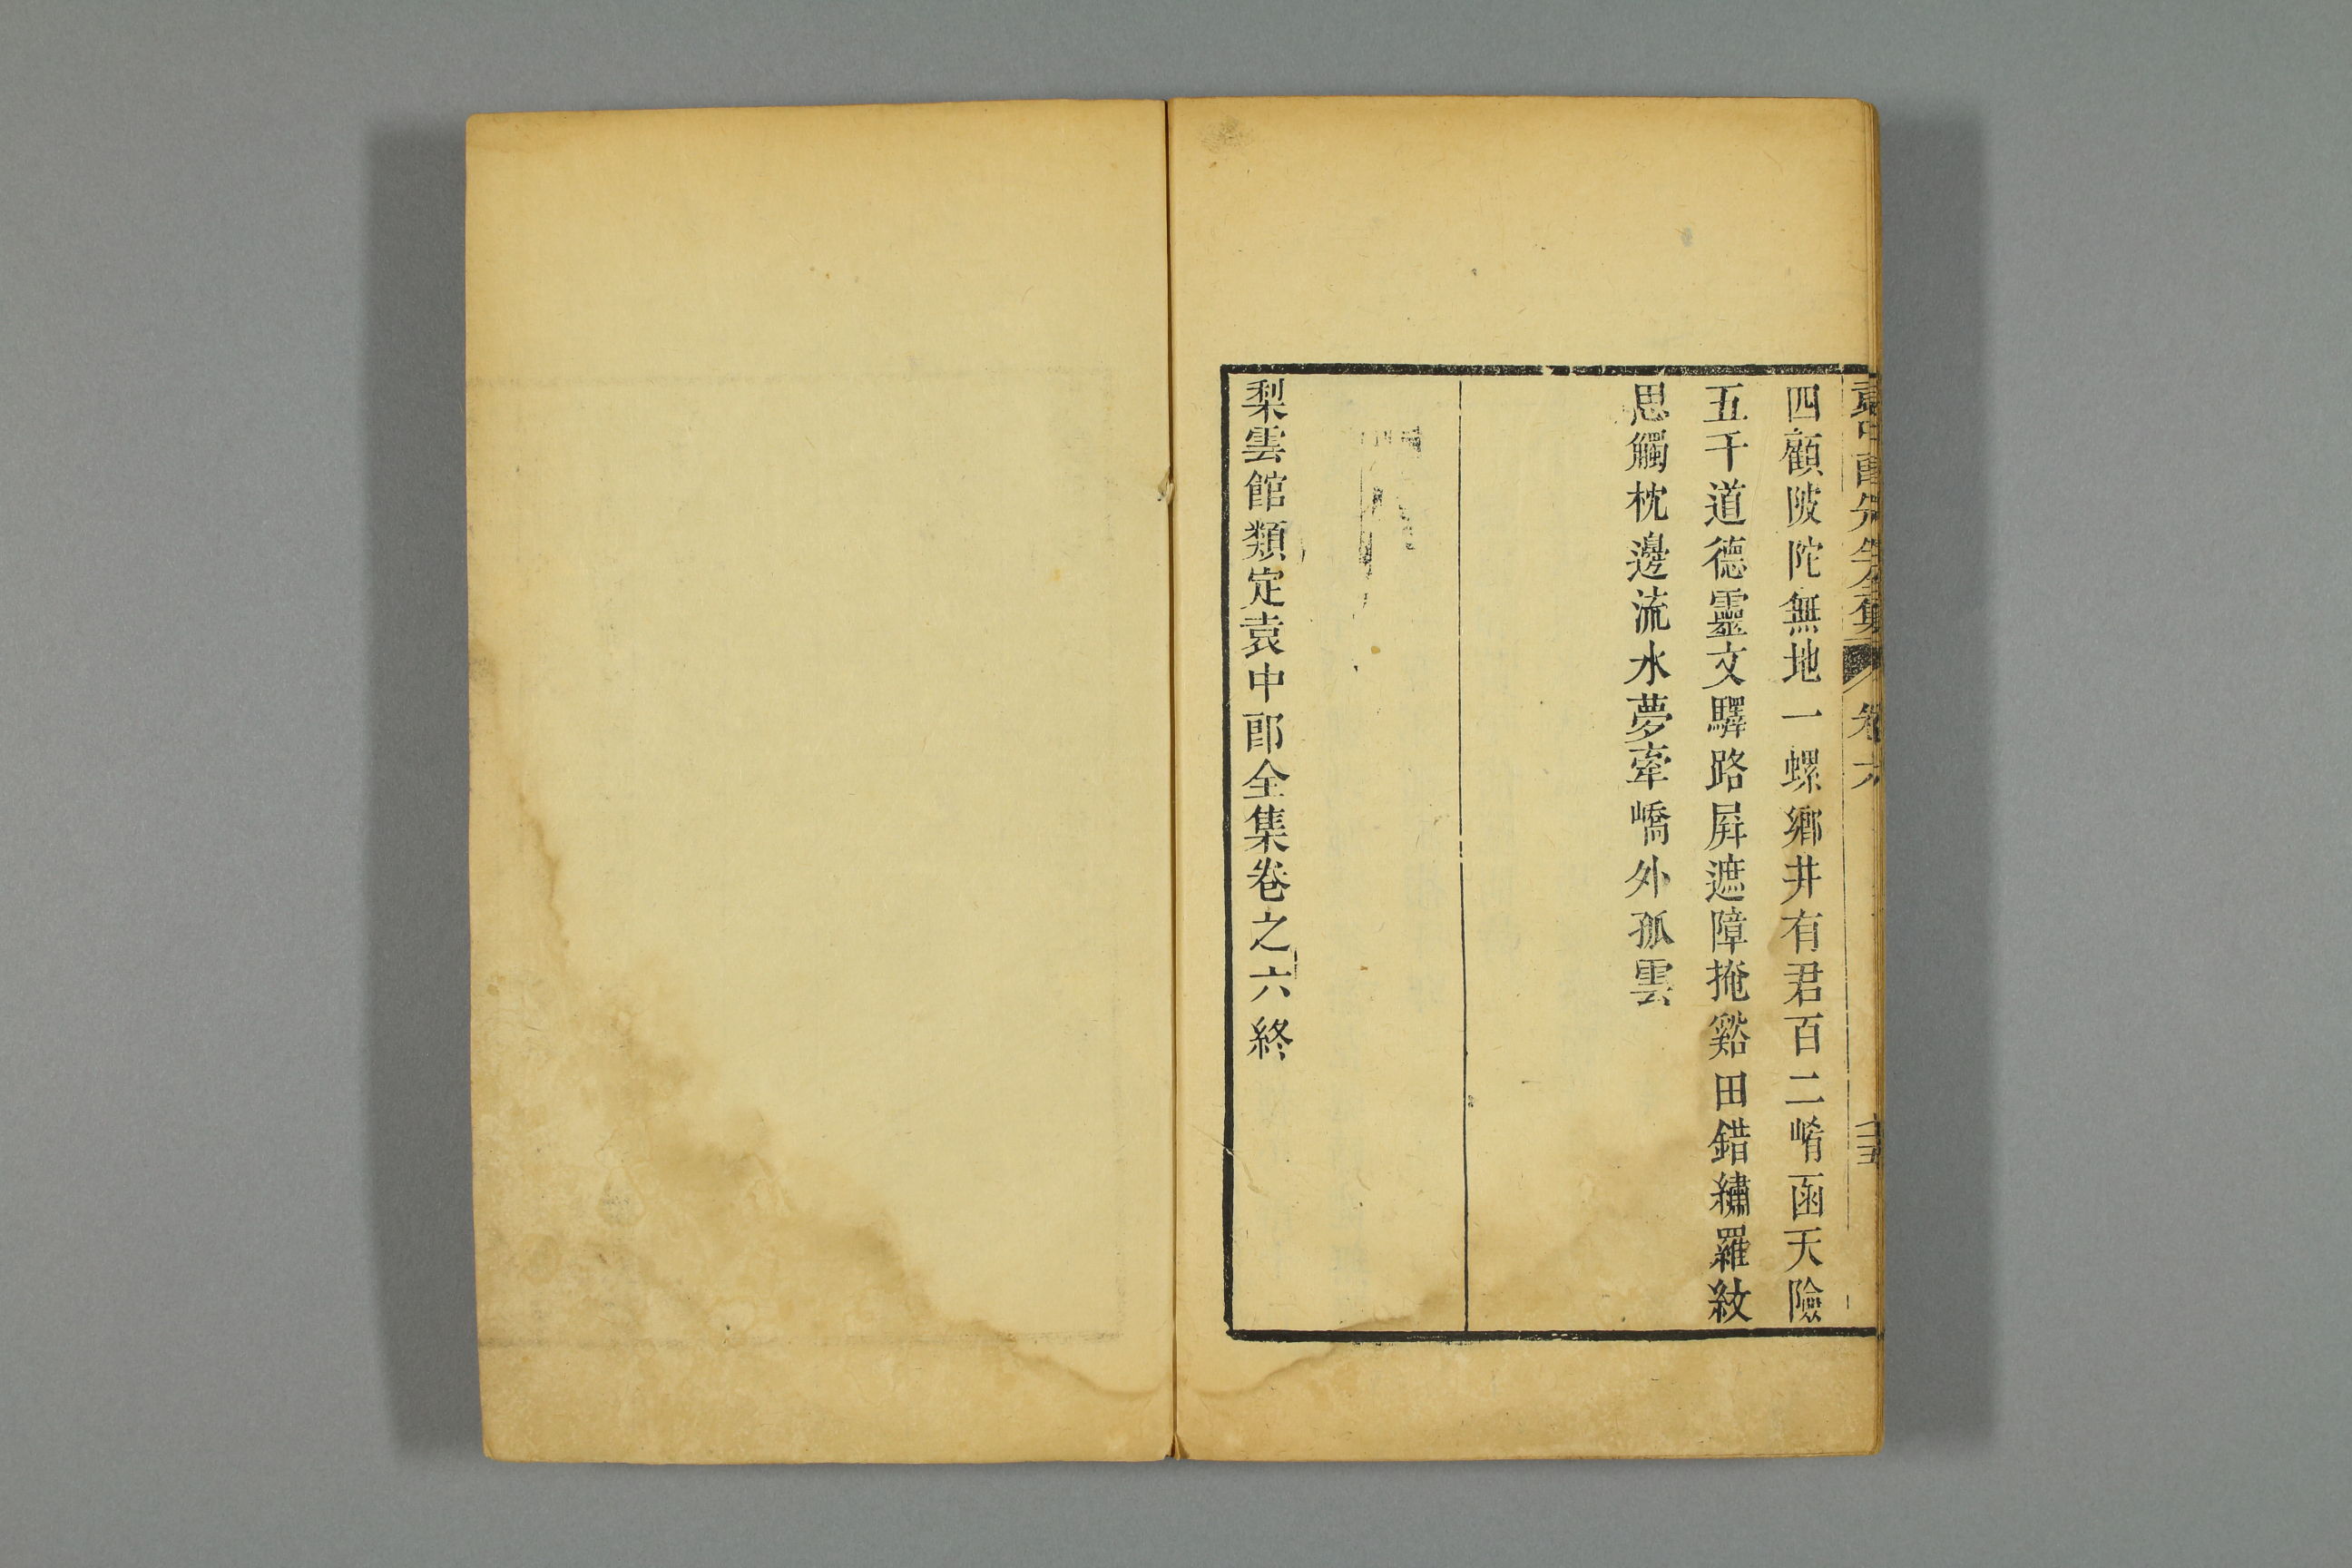 卷六
四顧陂陀無地一螺鄉井有君百二崤函天險
五千道德靈文驛路屏遮障掩谿田錯繡羅紋
思觸枕邊流水夢牽嶠外孤雲
梨雲館類定袁中郎全集卷之六終